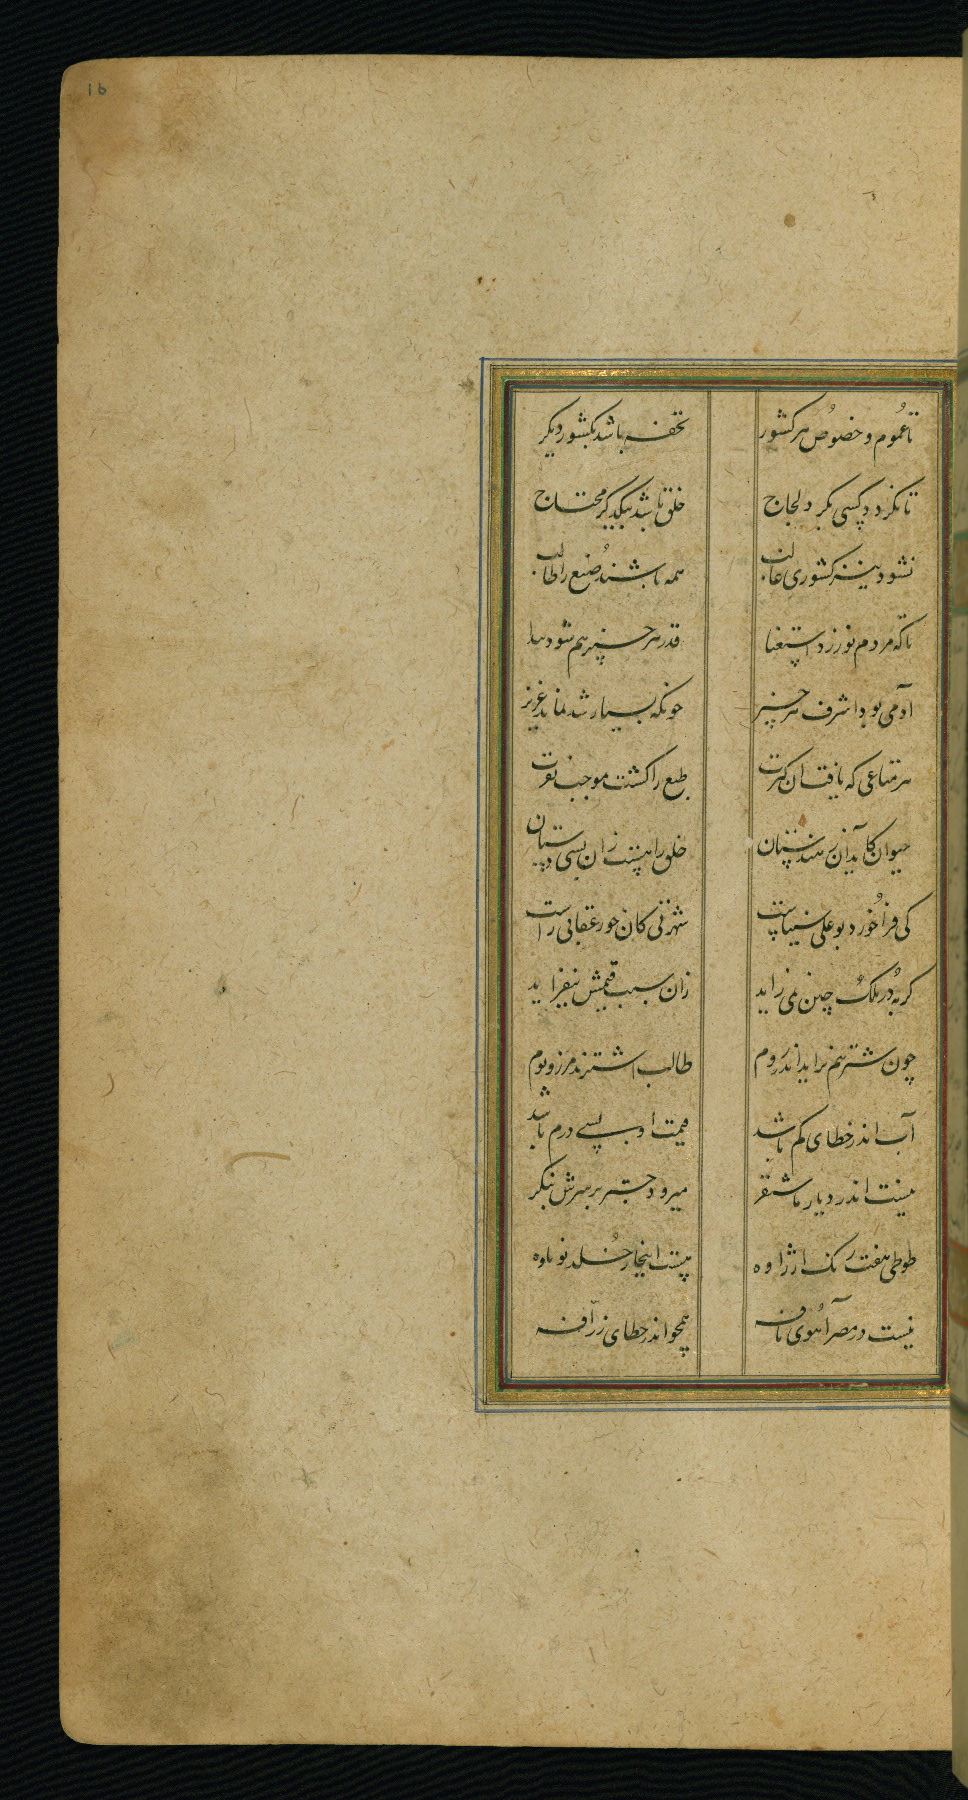 16
تا عموم و خصوص هر کشور تحفه باشد بکشور دیگر
تا نگردد کسی بگرد لجاج خلق باشد بیکدیگر محتاج
نشود نیز کشوری غالب همه باشند صنع را طالب
تا که مردم نورزد استغنا قدر هر چیز هم شود پیدا
آدمی بود اشرف هر چیز چونکه بسیار شد نماند عزیز
هر متاعی که یافت آن کثرت طبع را گشت موجب نفرت
حیوان کاید آن ز هندستان خلق را هست زان بسی دستان
کی فرا خورد بو علی سیناست شهرتی کان خور عقابی راست
گربه در ملک چین نمی زاید زان سبب قیمتش بیفزاید
چون شتر هم نزاید اندر روم طالب اشترند مرز و بوم
آب اندر خطای کم باشد قیمت او بسی درم باشد
نیست اندر دیار ما شنقر میرود چتر بر سرش بنگر
طوطی هفت رنک نیست اینجا ز خلد نوباوه
نیست در مصر آهوی نافه همچو اندر خطای زرافه